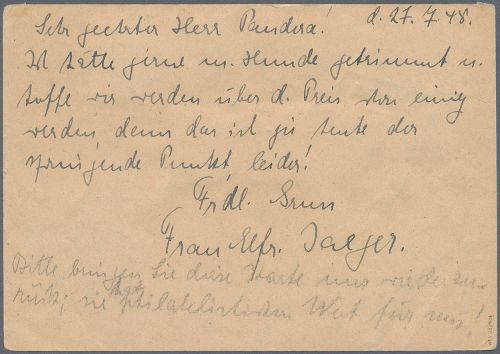 d. 27. 7. 48.
Sehr geehrter Herr Pandera!
Ich hätte gerne m. Hunde getrimmt u.
hoffe wir werden über d. Preis schon einig
werden denn das ist ja heute der
springende Punkt leider!
Frdl. Gruss
Frau Elfr. Jaeger.
Bitte bringen Sie diese Karte uns wieder zu-
rück; sie hat philatelistischen Wert für uns!